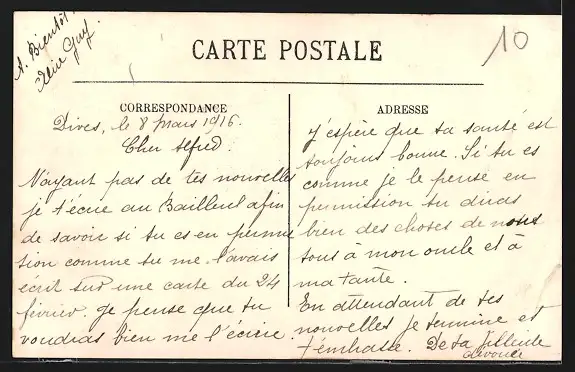 A. Bientôt.
10
CARTE POSTALE
CORRESPONDANCE
Dives, le 8 Mars 1916.
Cher Alfred.
N'ayant pas de tes nouvelles
je t'écrie au Bailleul afin
de savoir si tu es en permis
tion comme tu me l'avais
écrit sur une carte du 24
février. Je pense que tu
voudras bien me l'écrire.
ADRESSE
J'espère que ta santé est
toujours bonne. Si tu es
comme je le pense en
permission tu diras
bien des choses de nous
tous à mon oncle et à
ma tante.
En attendant de tes
nouvelles je termine et
t'embrasse. De ta filleule
dévouée